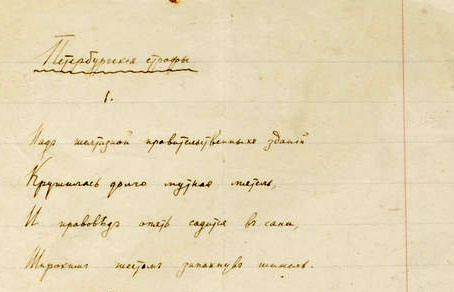 Петербургскія строфы
1.
Надъ желтизной правительственныхъ зданій
Кружилась долго мутная метель,
И правовѣдъ опять садится въ сани,
Широкимъ жестомъ запахнувъ шинель.